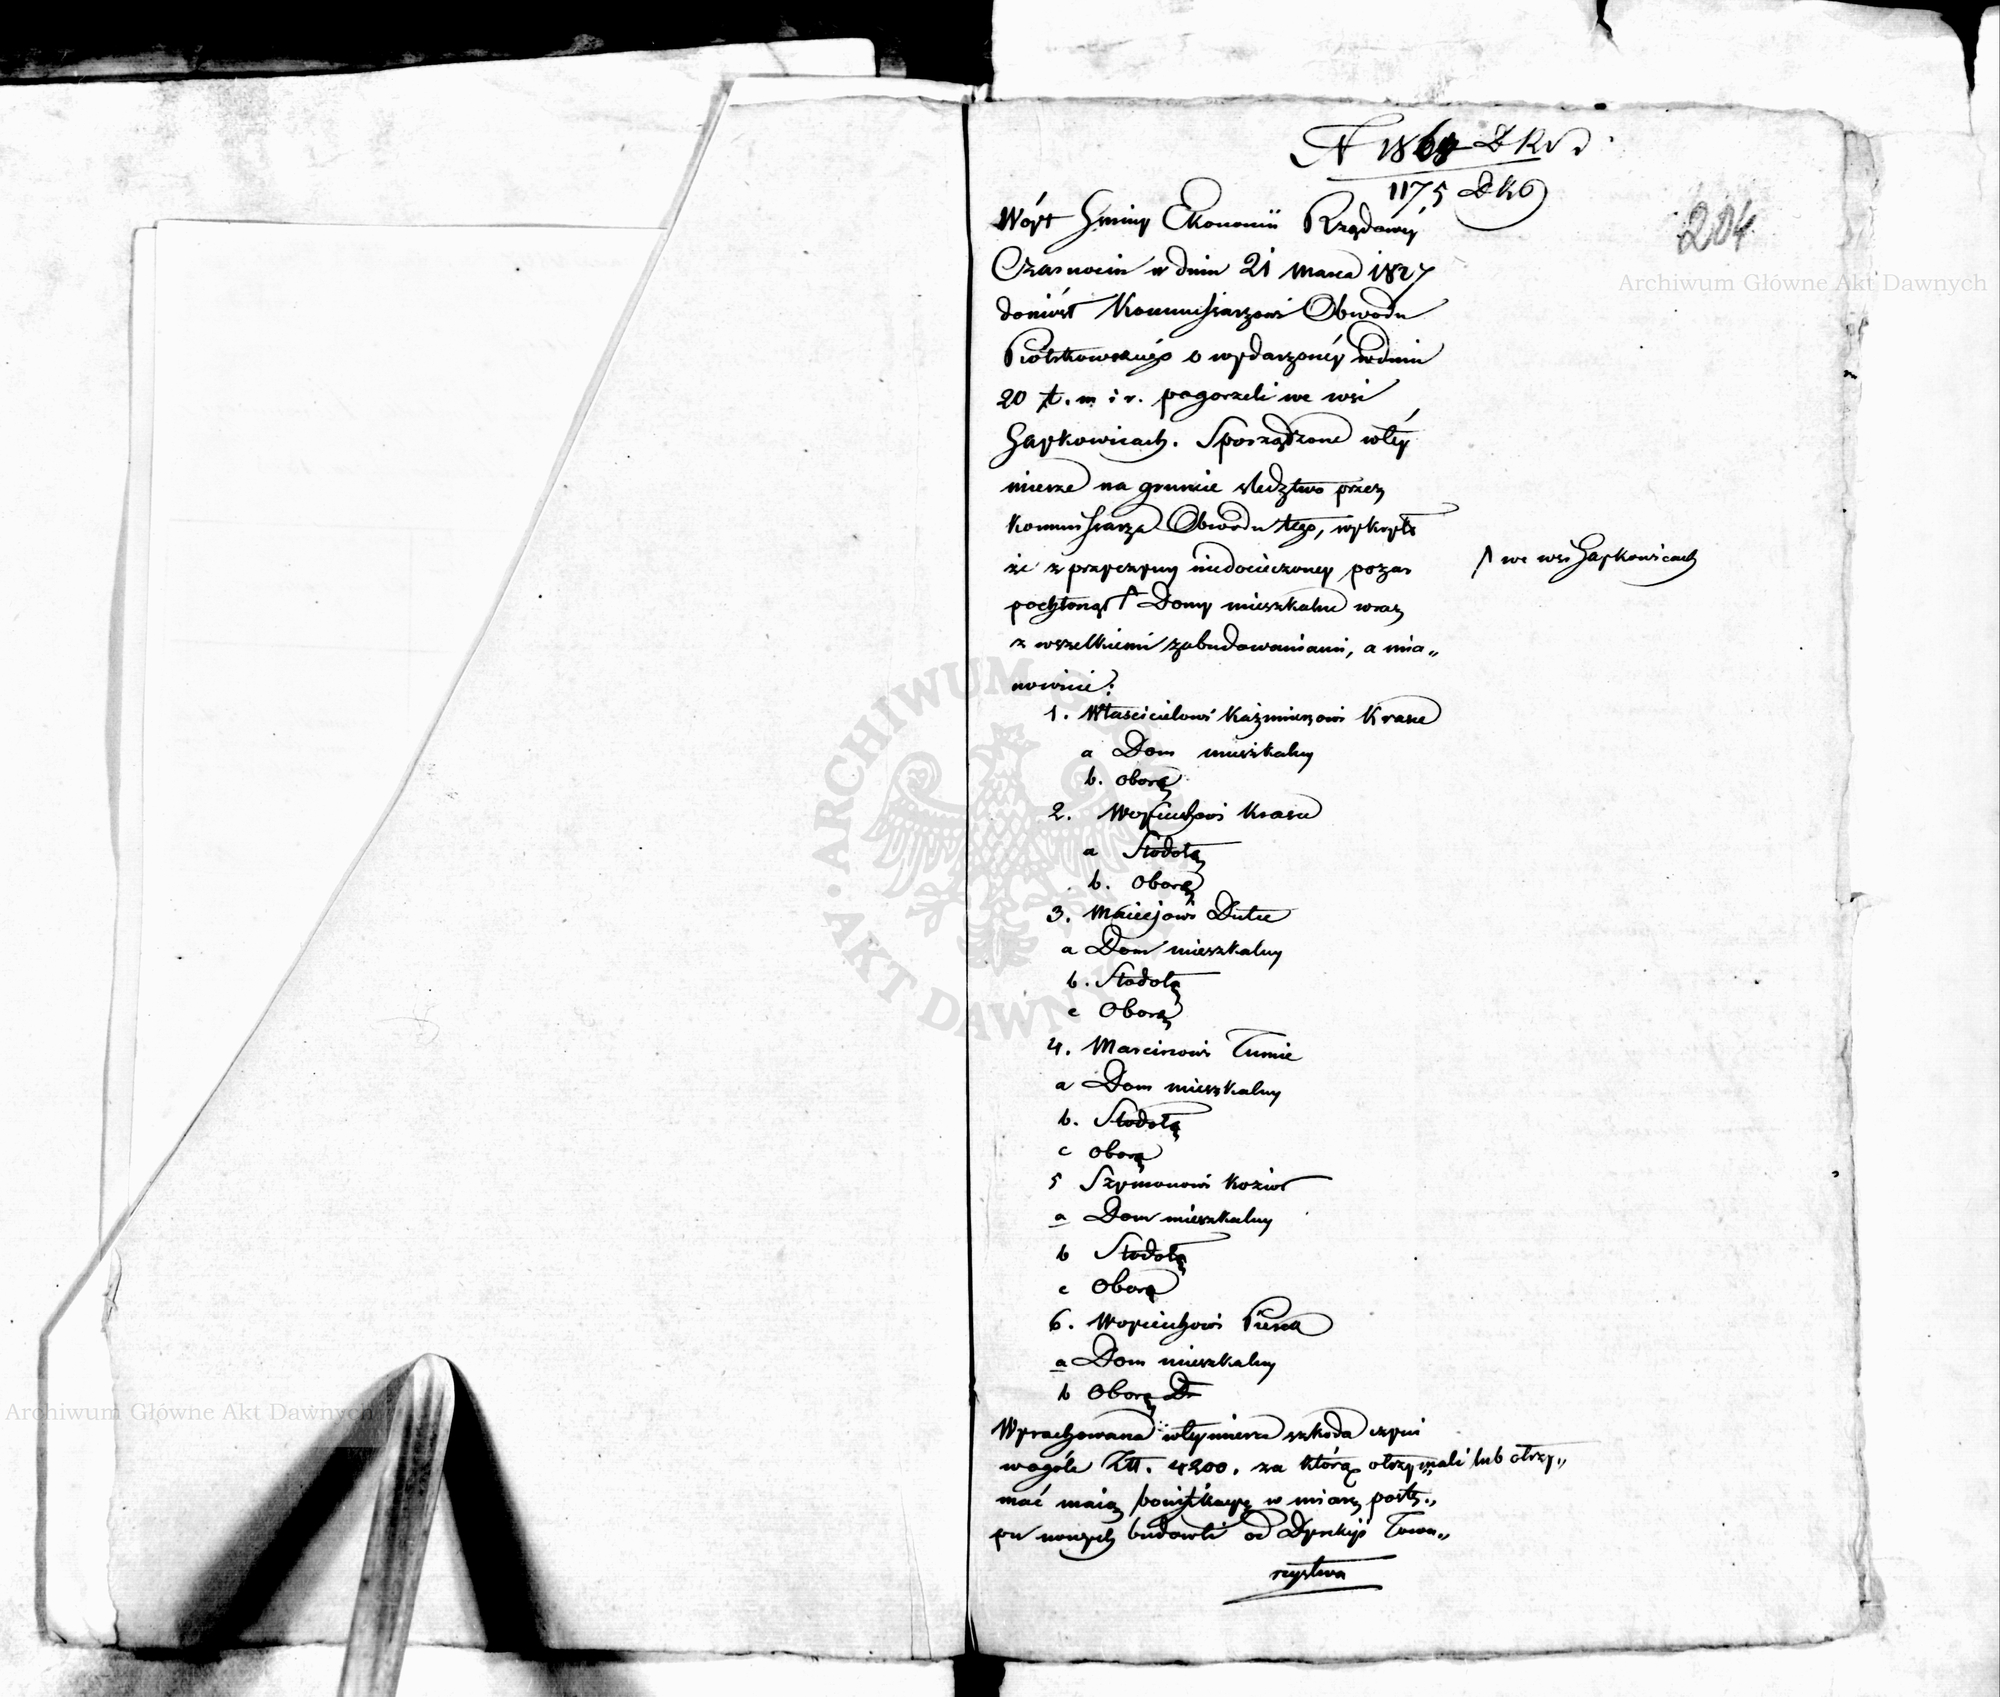 N 1868 DKRD
1175 DKO
204
Wóyt Gminy Ekonomii Rządowéy
Czarnocin w dniu 21 Marca 1827
doniósł Kommissarzowi Obwodu
Piotrkowskiego o wydarzonéy w dniu
20 t. m i r. pogorzeli we wsi
Gaykowicach. Sporządzone w téy
mierze na gruncie sledztwo przez
Kommissarza Obwodu tego, wykryło
że z przyczyny niedocieczoney pożar
pochłonął ↑ Domy mieszkalne wraz
↑ we wsi Gaykowicach
z wszelkiemi zabudowaniami, a mia„
nowicie:
1. Włascicielowi Kaźmierzowi Krasce
a Dom mieszkalny
b. Oborę
2. Woyciechowi Krasce
a Stodołę
b. Oborę
3. Maciejowi Dutce
a Dom mieszkalny
b. Stodołę
c Oborę
4. Marcinowi Tumie
a Dom mieszkalny
b. Stodołę
c Oborę
5 Szymonowi Kozioł
a Dom mieszkalny
b Stodołę
c Oborę
6. Woyciechowi
a Dom mieszkalny
b Oborę
Wyrachowana w téy mierze szkoda czyni
wogóle Złł. 4200. za którą otrzymali lub otrzy„
mać maią bonifikacyę w miarę postę„
pu nowych budowli od Dyrekcyi Towa„
rzystwa
Archiwum Główne Akt Dawnych
Archiwum Główne Akt Dawnych
ARCHIWUM
AKT DAWNYCH